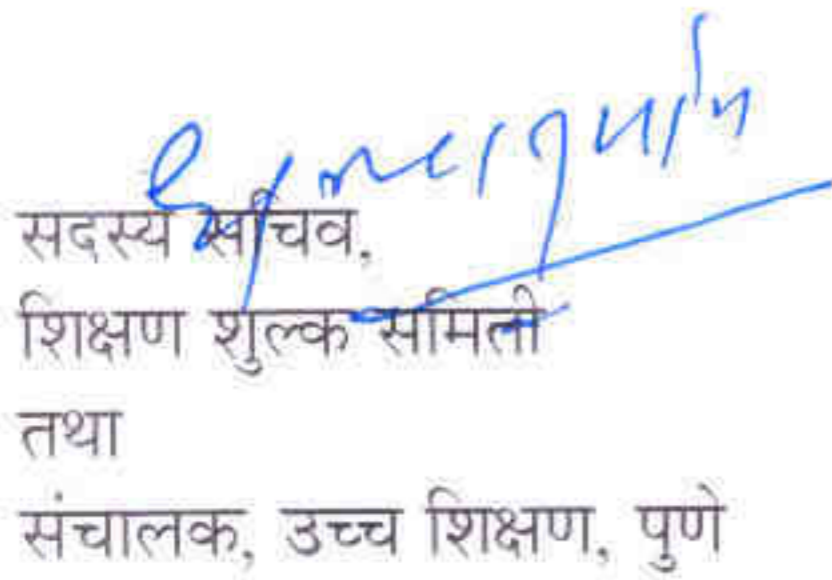 सदस्य सचिव,
शिक्षण शुल्क समिती
तथा
संचालक, उच्च शिक्षण, पुणे